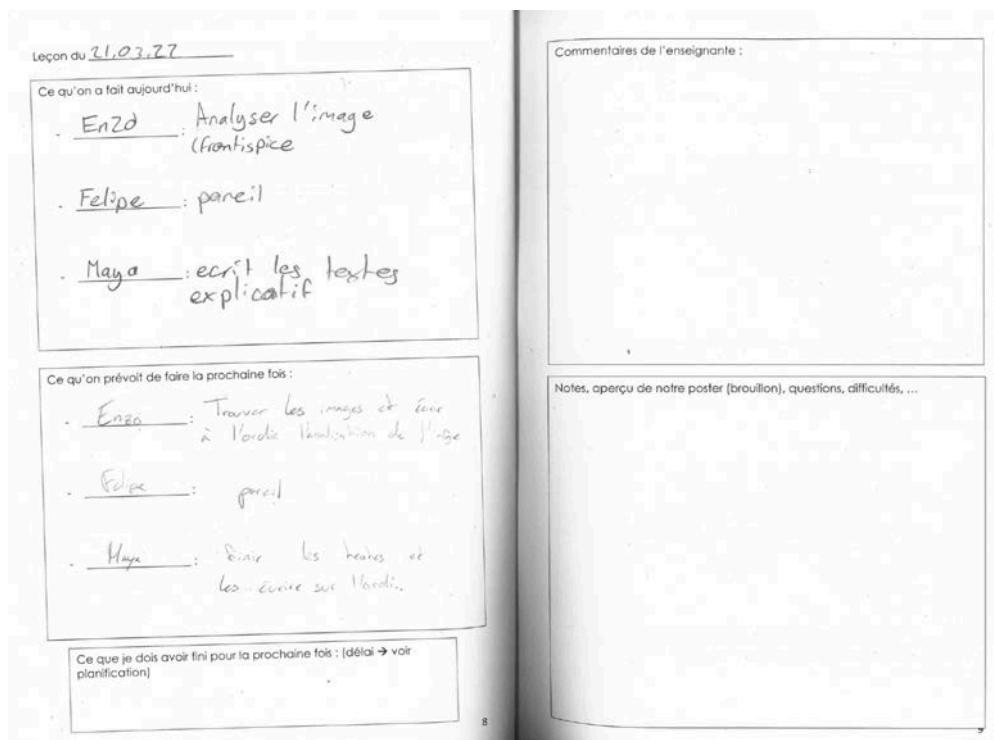 Leçon du 21.03.22
Ce qu'on a fait aujourd'hui :
. Enzo : Analyser l'image
(frontispice
. Felipe : pareil
. Maya : ecrit les textes
explicatif
Ce qu'on prévoit de faire la prochaine fois :
. Enzo : Trouver les images et
à l'ordi de l'image
. Felipe : pareil
. Maya : finir les textes et
les écrire sur l'ordi.
Ce que je dois avoir fini pour la prochaine fois : (délai → voir
planification)
8
Commentaires de l'enseignante :
Notes, aperçu de notre poster (brouillon), questions, difficultés, ...
9